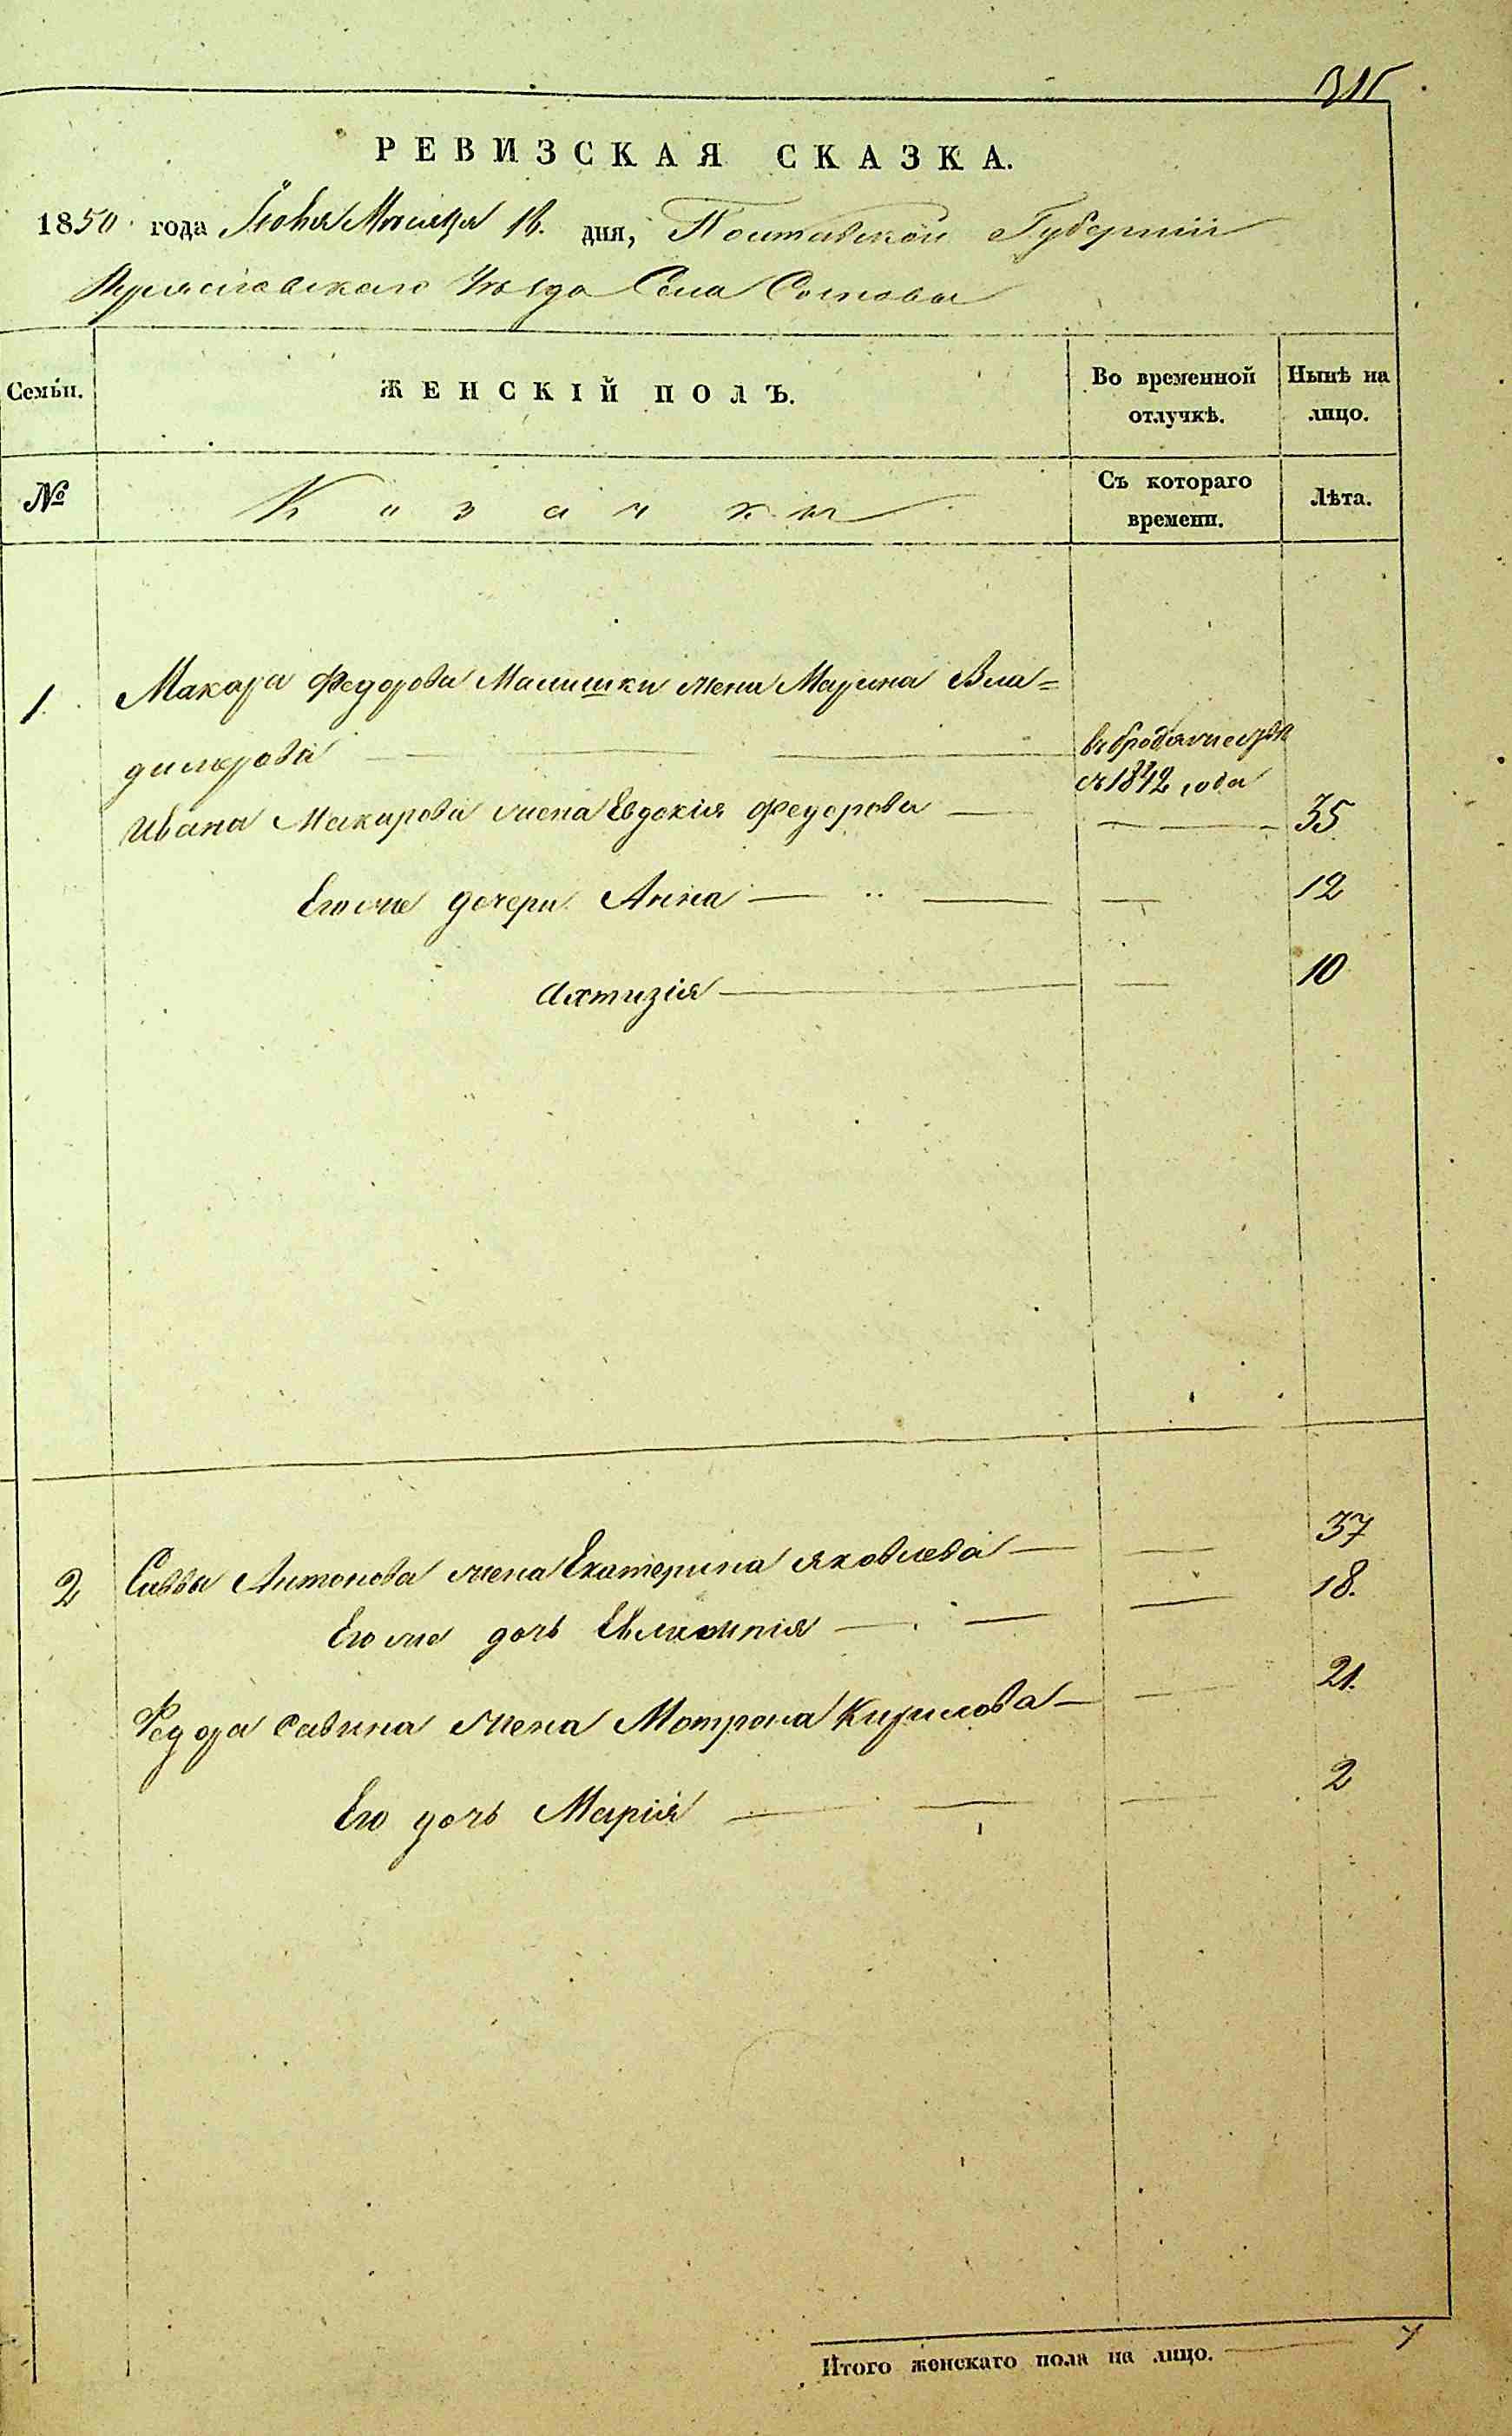 315
РЕВИЗСКАЯ СКАЗКА.
1850 года Іюня Месяца 16. дня, Полтавской Губерніи
Переяславского Уезда Села Сосновы
Семьи. ЖЕНСКІЙ ПОЛЪ. Во временной отлучкѣ. Нынѣ на лицо.
№ Казачки Съ котораго времени. Лѣта.
1. Макара Федорова Малишки жена Марина Вла=
димерова въ бродяжествѣ
съ 1842 года
Ивана Макарова жена Евдокія Федорова 35
Его же дочери Анна 12
Охтизія 10
2 Саввы Антонова жена Екатерина Яковлева 37
Его же дочь Евлампія 18.
Федора Савина жена Мотрона Кирилова 21.
Его дочь Марія 2
Итого женскаго пола на лицо. 7